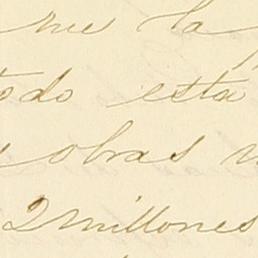 me la
todo esta
obras
2 millones